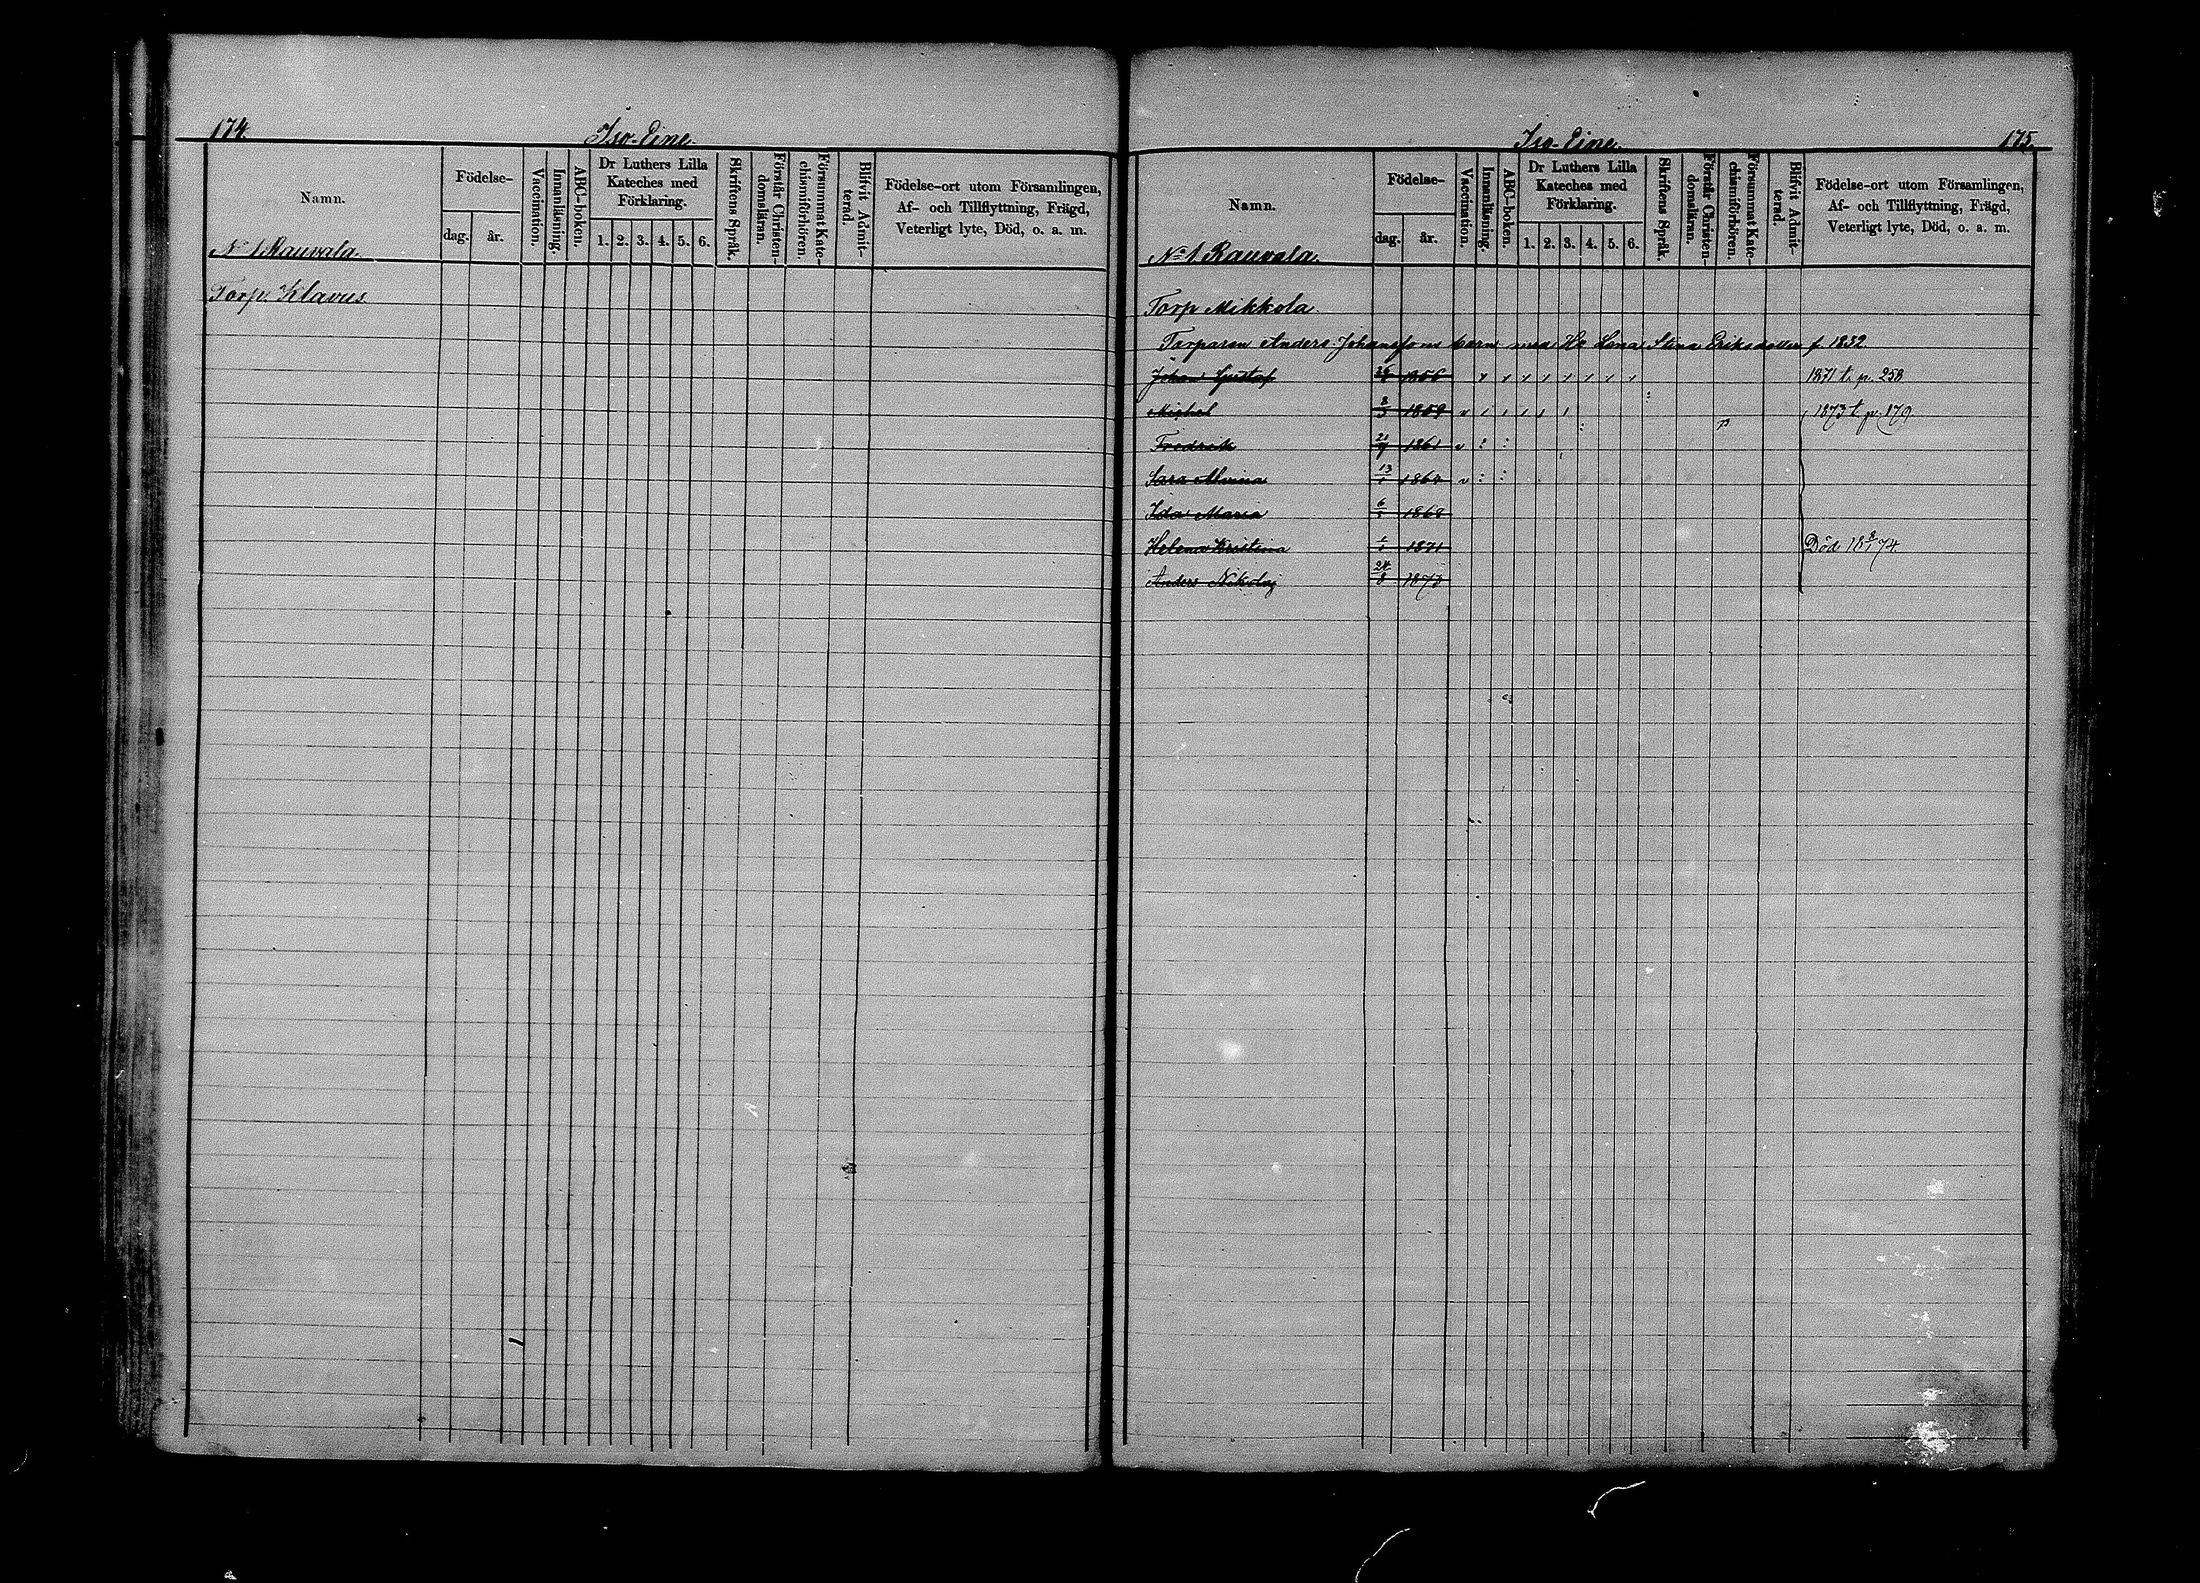 174.
Iso-Eine.
Namn.
Födelse-
dag.
år.
Vaccination.
Innanläsning.
ABC-boken.
Dr Luthers Lilla
Kateches med
Förklaring.
1. 2. 3. 4. 5. 6.
Skriftens Språk.
Förstår Christen-
domsläran.
Försummat Kate-
chismiförhören.
Blifvit Admit-
terad.
Födelse-ort utom Församlingen,
Af- och Tillflyttning, Frägd,
Veterligt lyte, Död, o. a. m.
No 1 Rauvala.
Torp Klavus
Iso-Eine.
175.
Namn.
Födelse-
dag.
år.
Vaccination.
Innanläsning.
ABC-boken.
Dr Luthers Lilla
Kateches med
Förklaring.
1. 2. 3. 4. 5. 6.
Skriftens Språk.
Förstår Christen-
domsläran.
Försummat Kate-
chismiförhören.
Blifvit Admit-
terad.
Födelse-ort utom Församlingen,
Af- och Tillflyttning, Frägd,
Veterligt lyte, Död, o. a. m.
No 1 Rauvala.
Torp Mikkola.
Torparen Anders Johanssons barn med Hu Lena Stina Eriksdotter f. 1832.
Johan Gustaf 1856 1871 t. p. 258
Michel 1859 1873 t. p. 179.
Fredrik 1861
Sara Alvina 13/1 1864
Ida Maria 1868
Helena Kristina 1871 Död 18 8/1 74.
Anders Nikolaj 24/8 1873